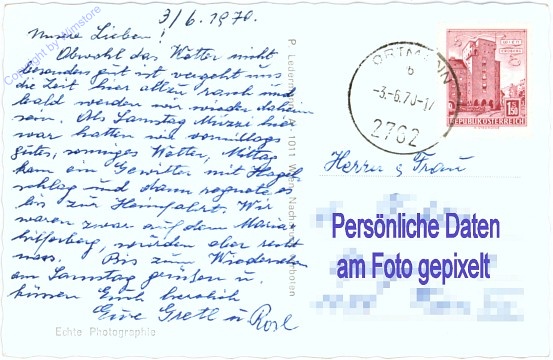 3/6. 1970.
Meine Lieben!
Obwohl das Wetter nicht
besonders gut ist vergeht uns
die Zeit hier allzu rasch und
bald werden wir wieder daheim
sein. Als Samstag Mitzi hier
war hatten wir vormittags
gutes, sonniges Wetter, Mittag
kam ein Gewitter mit Hagel
schlag und dann regnete es
bis zur Heimfahrt. Wir
waren zwar auf dem Maria
hilferberg, wurden aber recht
nass. Bis zum Wiedersehen
am Samstag grüssen u.
küssen Euch herzlich
Eure Gretl u. Rosl
Echte Photographie
P. Ledermann, 1011 Wien
Nachdruck verboten
Copyright by
ORTMANN
b
-3.-6.70-17
2762
1.50
REPUBLIK ÖSTERREICH
Herrn & Frau
Persönliche Daten
am Foto gepixelt